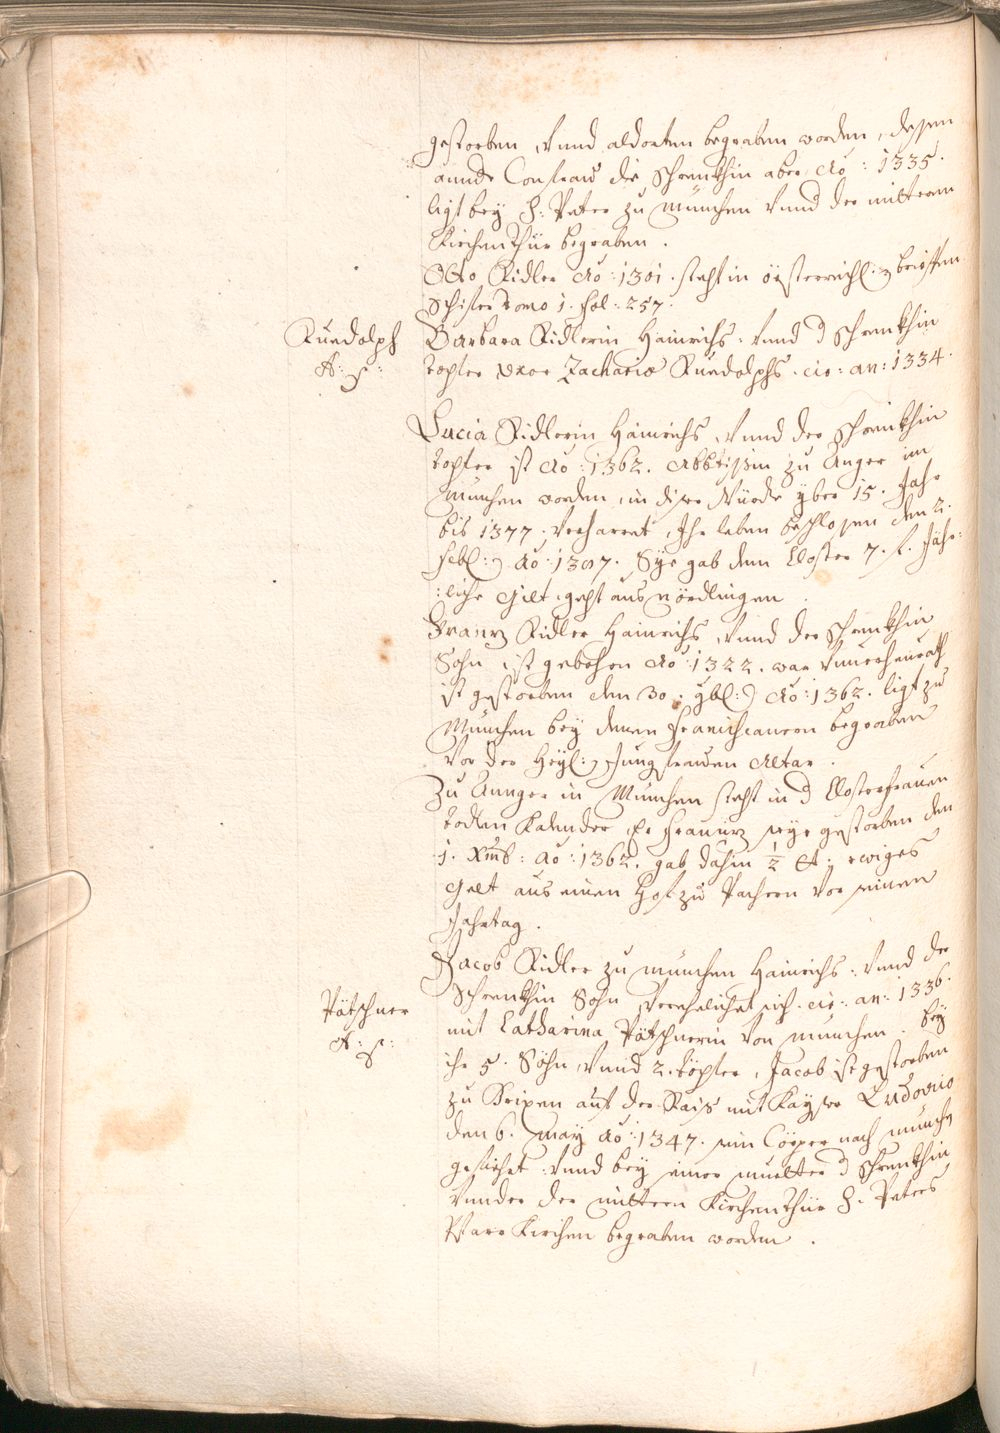 gestorben, Vnnd aldorten begraben worden, dessen
annde Confrau die Schrenkhin aber Ao: 1335.
ligt bey S: Peter zu München Vnnd der mittern
Kirchen Thür begraben.
Otto Ridler Ao: 1301. steht in össterreich: brieffen
Tomo 1. fol: 257.
Ruedolph
A: S:
Barbara Ridlerin Hainrichs, Vnnd d Schrenkhin
tochter Uxor Zachariæ Ruedolphs. cir: an: 1334.
Lucia Ridlerin Hainrichs, Vnnd der Schrenkhin
tochter ist Ao: 1362. Abbtissin zu Anger in
München worden, in diser Würde yber 15. Jahr
bis 1377. Verharret, Ihr leben beschlossen den 2.
febl: Ao: 1387. Sye gab dem Closter 7. f. Jähr:
:liche Gilt, geht aus Nördlingen.
Franz Ridler Hainrichs, Vnnd der Schrenkhin
Sohn, ist gebohren Ao: 1322. war Innerhenrath
ist gestorben den 30. 9bl: Ao: 1362. ligt zu
München bey denen Franciscanern begraben
Vor der Heyl: Jungfrauen Altar.
Zu Annger in München steht in d Closterfrauen
todten Kalender, Er Franz seye gestorben den
1. Xmb: Ao: 1362. gab dahin ½ A: ewiges
Gelt aus einen Hof zu Pachern Vor seinen
Jahrtag.
Pätschner
A: S:
Jacob Ridler zu München Hainrichs, Vnnd der
Schrenkhin Sohn, Verehelichet sich. cir: an: 1336.
mit Catharina Pätschnerin Von München. bey
ihr 5. Söhn, Vnnd 2. töchter, Jacob ist gestorben
zu Brixen auf der Rais mit Kayser Ludovico
den 6. May Ao: 1347. sein Cörper nach München
gefiehrt, Vnnd bey seiner muetter d Schrenkhin
Vnnder der mittern Kirchen Thür S. Peters
Pfarr Kirchen begraben worden.